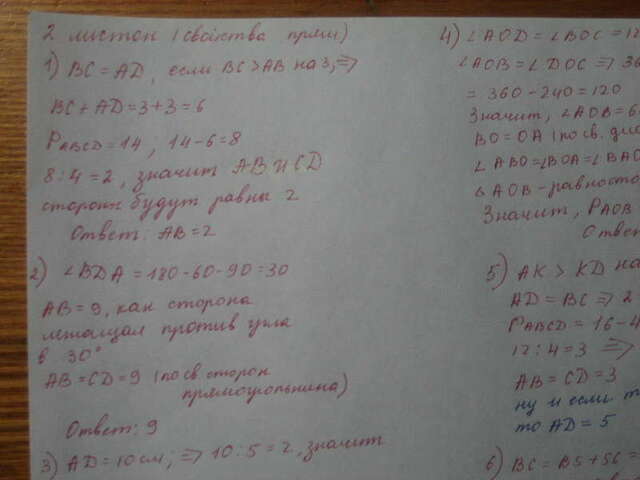 2 листок (свойства прям)
1) BC = AD, если BC > AB на 3, =>
BC + AD = 3 + 3 = 6
PABCD = 14, 14 - 6 = 8
8 : 4 = 2, значит AB и CD
стороны будут равны 2
Ответ: AB = 2
2) ∠BDA = 180 - 60 - 90 = 30
AB = 9, как сторона
лежащая против угла
в 30°
AB = CD = 9 (по св. сторон
прямоугольника)
Ответ: 9
3) AD = 10 см; => 10 : 5 = 2, значит
4) ∠AOD = ∠BOC = 12
∠AOB = ∠DOC => 36
= 360 - 240 = 120
Значит, ∠AOB = 6
BO = OA (по св. диа
∠ABO = ∠BOA = ∠BAO
△AOB - равносто
Значит, PAOB
Ответ
5) AK > KD на
AD = BC => 2
PABCD = 16 - 4
12 : 4 = 3 =>
AB = CD = 3
ну и если т
то AD = 5
6) BC = B5 + 5C =